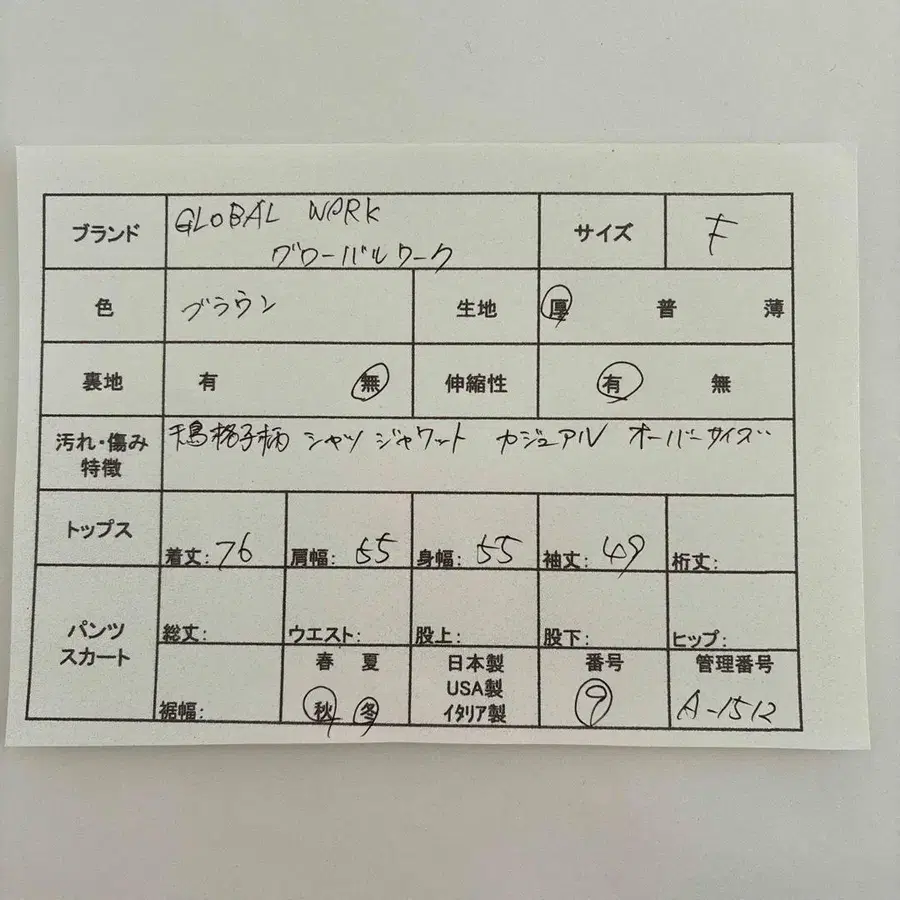 ブランド GLOBAL WORK サイズ F
グローバルワーク
色 ブラウン 生地 厚 普 薄
裏地 有 無 伸縮性 有 無
汚れ・傷み 千鳥格子柄 シャツジャケット カジュアル オーバーサイズ
特徴
トップス 着丈:76 肩幅:55 身幅:55 袖丈:49 裄丈:
パンツ 総丈: ウエスト: 股上: 股下: ヒップ:
スカート 春 夏 日本製 番号 管理番号
USA製
裾幅: 秋 冬 イタリア製 9 A-1512